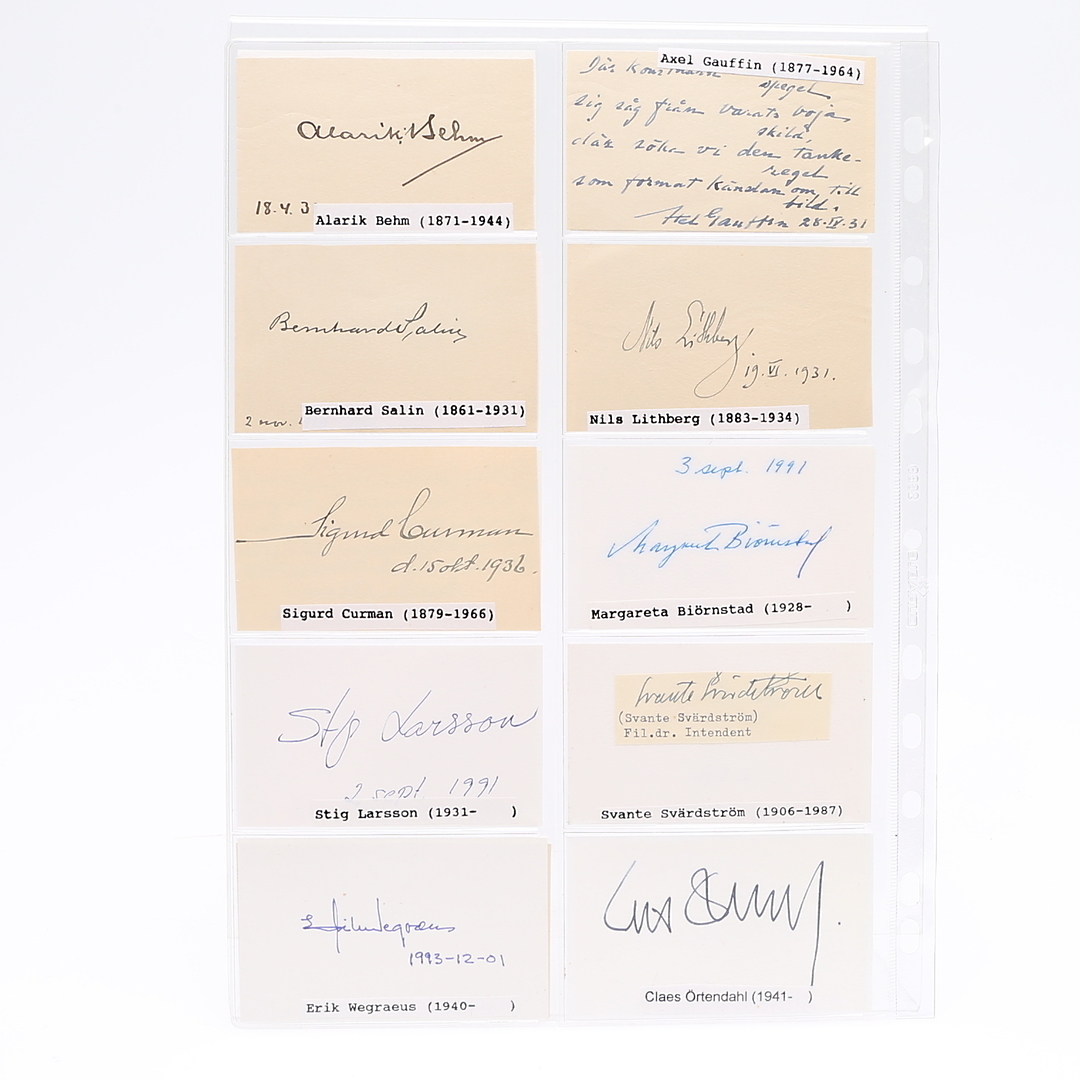 Alarik Behm
18.4.3
Alarik Behm (1871-1944)
Axel Gauffin (1877-1964)
spegel
sig såg från varats
sköld,
där söka vi den tanke-
regel
som format känslan om till
bild.
Axel Gauffin 28.IV.31
Bernhard Salin
2 nov.
Bernhard Salin (1861-1931)
Nils Lithberg
19.VI.1931.
Nils Lithberg (1883-1934)
Sigurd Curman
d. 15 okt. 1936.
Sigurd Curman (1879-1966)
3 sept. 1991
Margareta Biörnstad
Margareta Biörnstad (1928- )
Stig Larsson
2 sept 1991
Stig Larsson (1931- )
Svante Svärdström
(Svante Svärdström)
Fil.dr. Intendent
Svante Svärdström (1906-1987)
Erik Wegraeus
1993-12-01
Erik Wegraeus (1940- )
Claes Örtendahl (1941- )